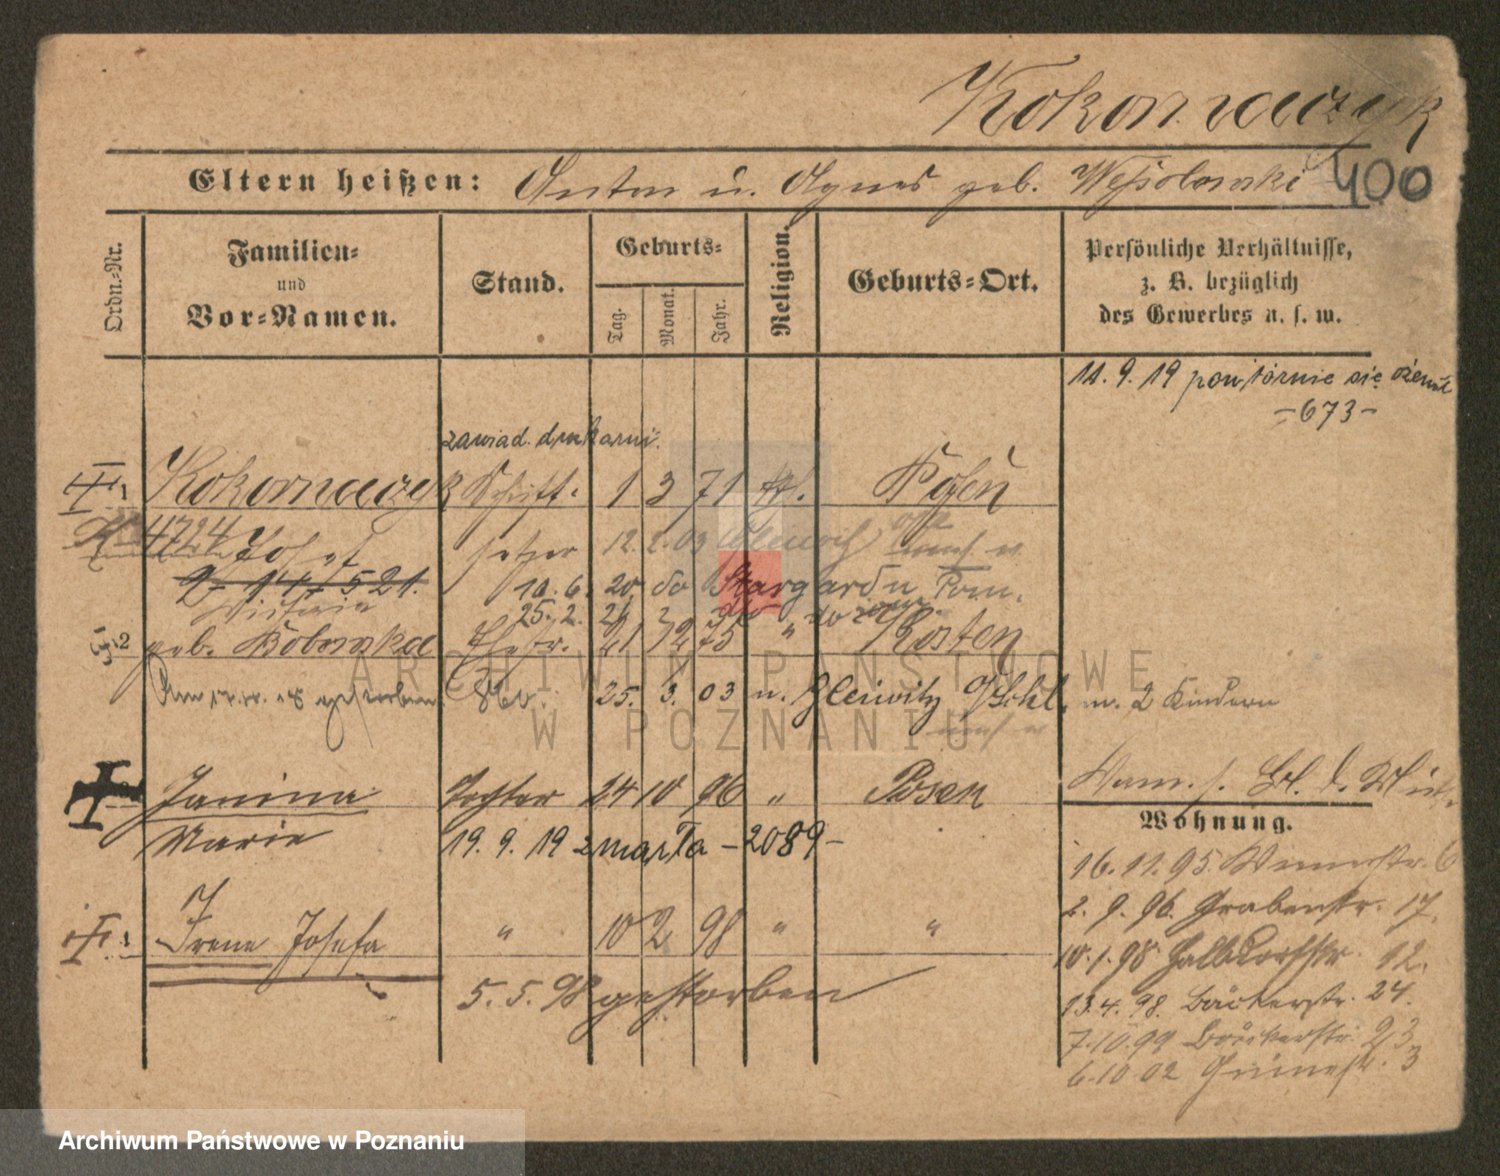 Kokornaczyk
Eltern heißen: Anton u. Agnes geb. Weßolowski 400
Ordn.-Nr.
Familien-
und
Vor-Namen.
Stand.
Geburts-
Tag.
Monat.
Jahr.
Religion.
Geburts-Ort.
Persönliche Verhältnisse,
z. B. bezüglich
des Gewerbes u. s. w.
11. 9. 19 powtórnie się ożenił
-673-
zawiad. drukarni
1 Kokornaczyk Schrift- 1 3 71 kt. Posen
4724 Josef setzer 12. 2. 03 Gleiwitz
2 14/5 21. 10. 6. 20. do Stargard i Pom.
25. 2. 21
2 geb. Bobowska Ehefr. 21 12 75 " Kosten
gestorben 25. 3. 03 n. Gleiwitz O/Schl. m. 2 Kindern
Janina Tochter 24 10 96 " Posen
Marie 19. 9. 19 zmarła -2089-
Irene Josefa " 10 2 98 " "
5. 5. 98 gestorben
Wohnung.
16. 11. 95
2. 9. 96. Grabenstr. 17.
10. 1. 98 Halbdorfstr. 12.
13. 4. 98. Bäckerstr. 24.
7. 10. 99 Bäckerstr. 23
6. 10 02 Grünestr. 3
ARCHIWUM PAŃSTWOWE
W POZNANIU
Archiwum Państwowe w Poznaniu